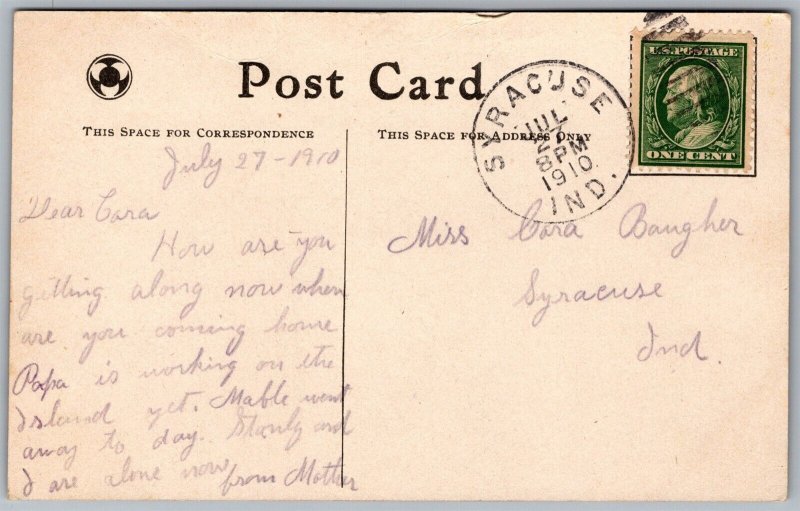 Post Card
THIS SPACE FOR CORRESPONDENCE
THIS SPACE FOR ADDRESS ONLY
SYRACUSE
JUL
27
8 PM
1910
IND.
U.S. POSTAGE
ONE CENT
July 27-1910
Dear Cora
How are you
getting along now when
are you coming home
Papa is working on the
Island yet. Mable went
away to day. Stanly and
I are alone now
from Mother
Miss Cora Baugher
Syracuse
Ind.